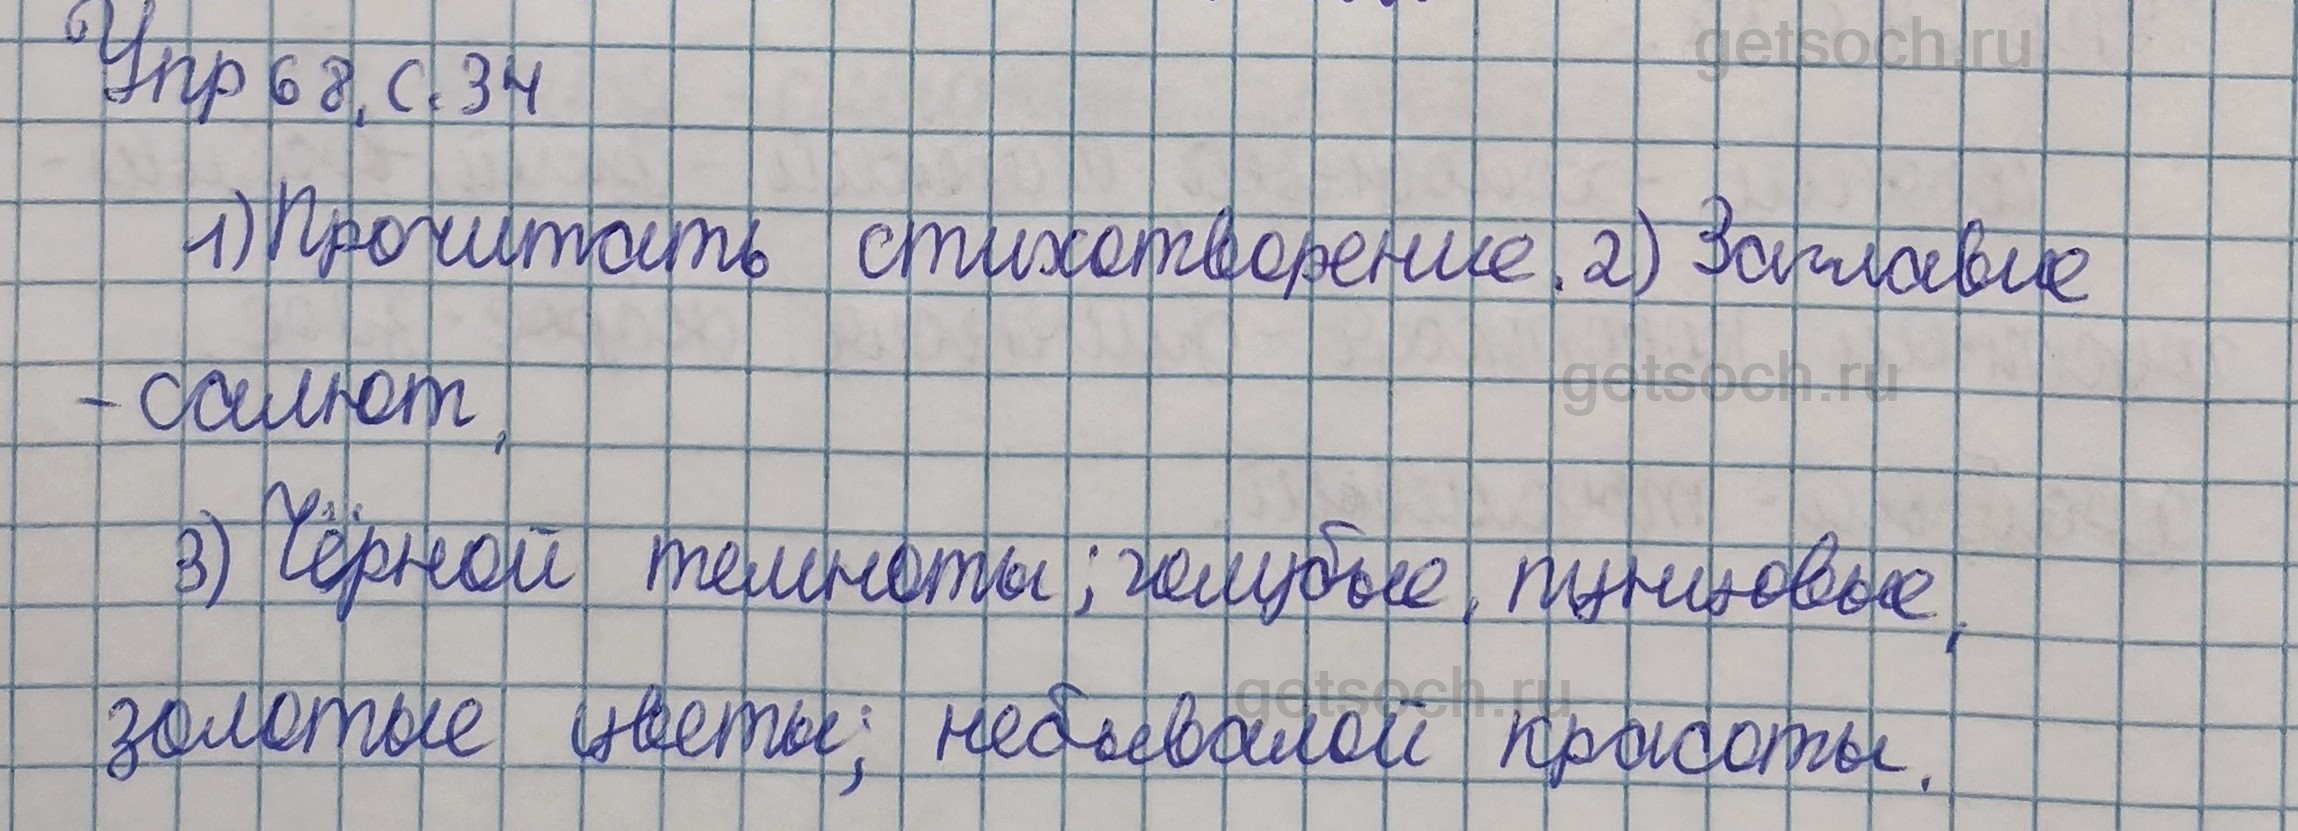 getsoch.ru
Упр 68, с. 34
1) Прочитать стихотворение. 2) Заглавие
getsoch.ru
- салют,
3) Чёрной темноты; голубые, пунцовые,
getsoch.ru
золотые цветы; небывалой красоты.